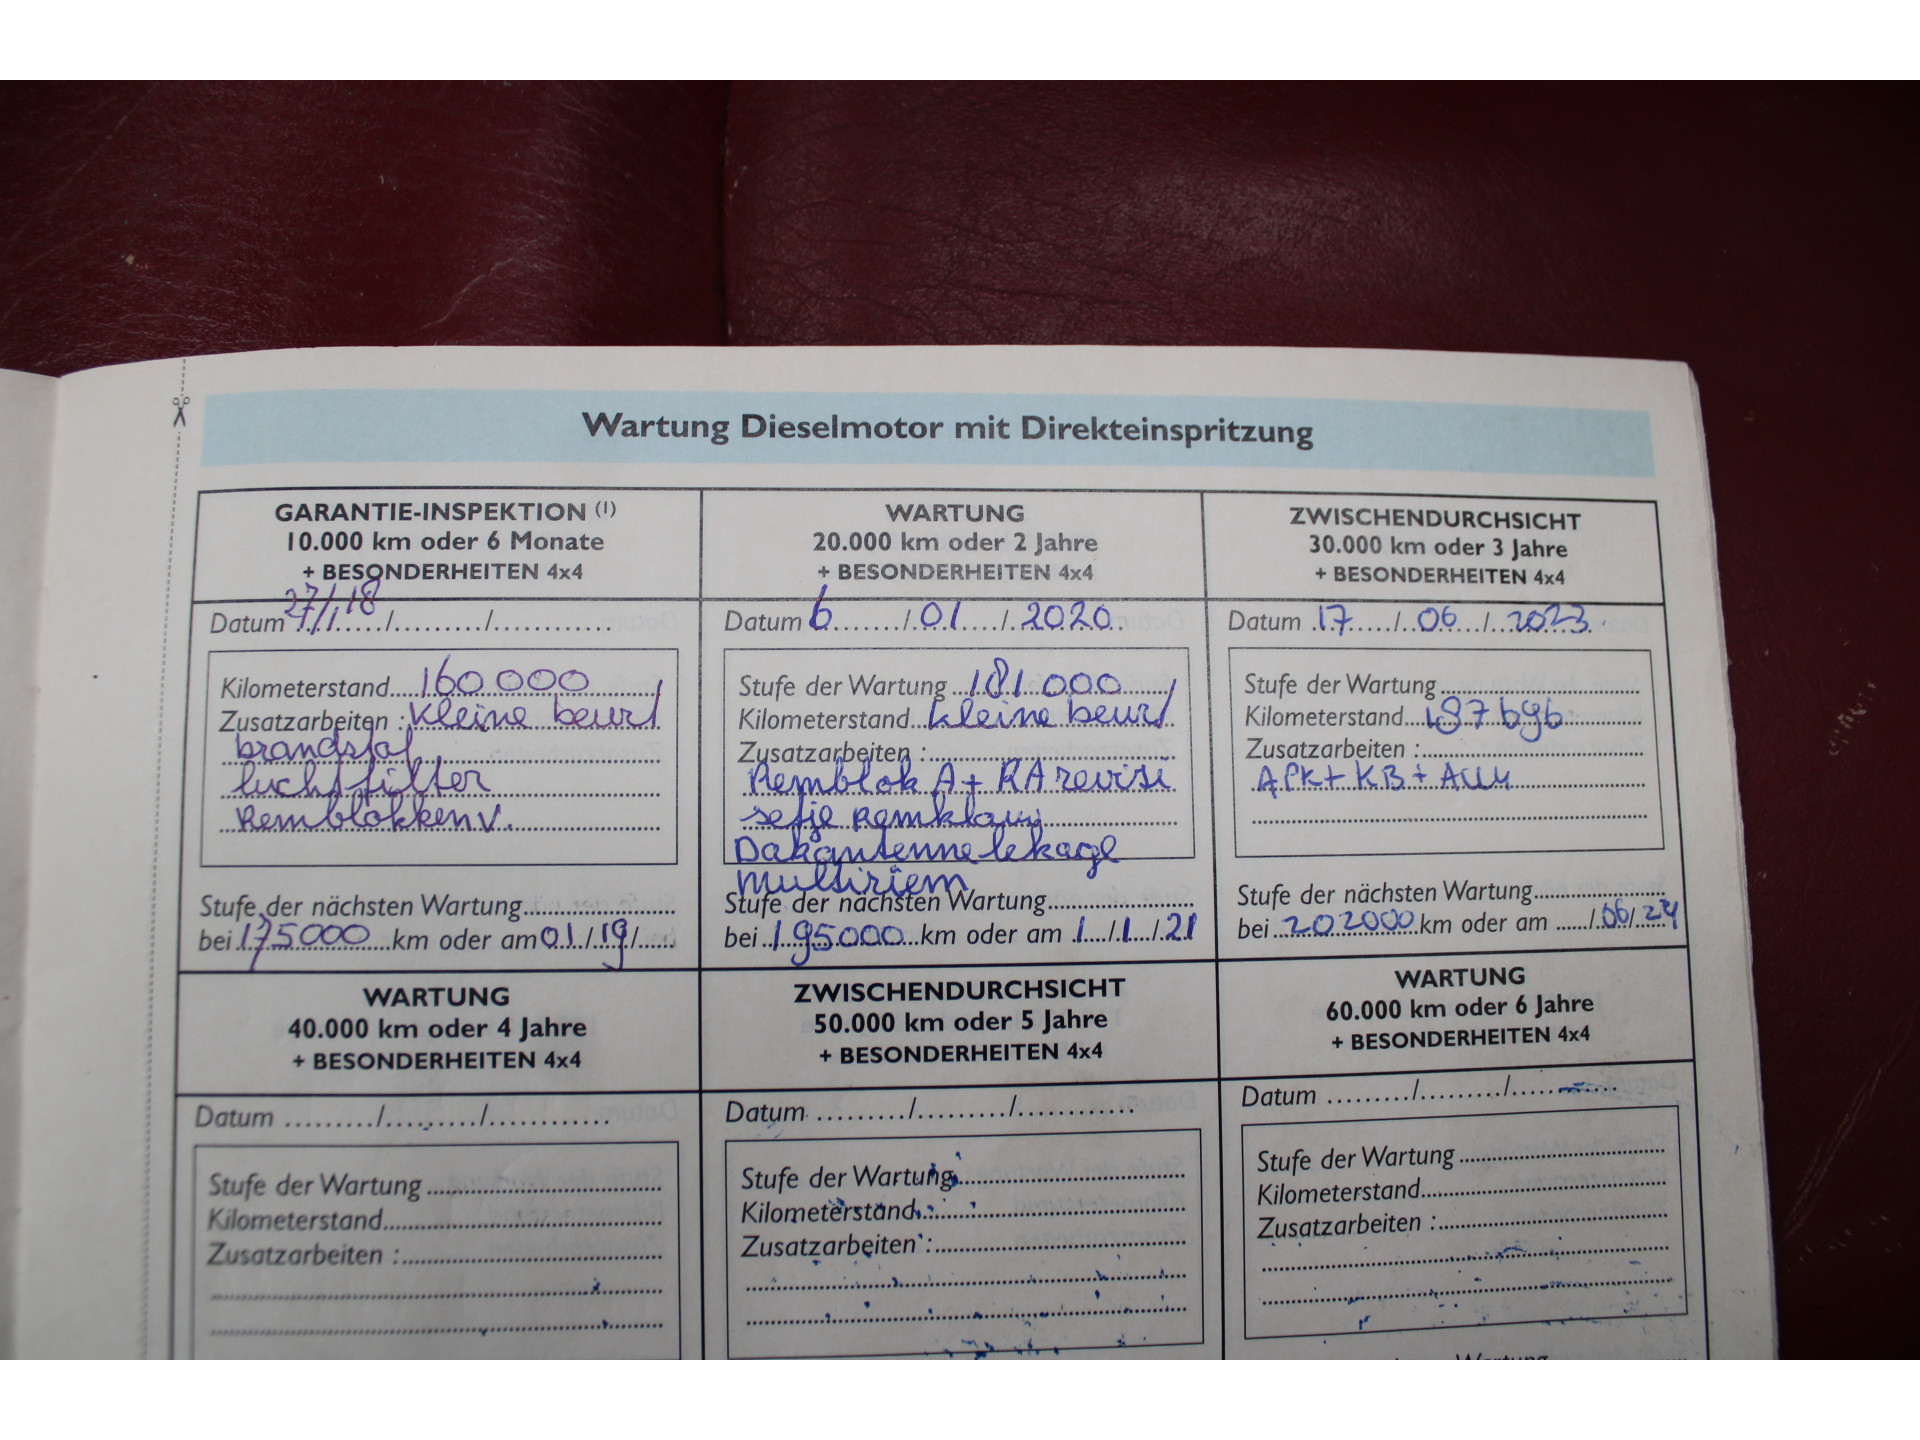 Wartung Dieselmotor mit Direkteinspritzung
GARANTIE-INSPEKTION (1)
10.000 km oder 6 Monate
+ BESONDERHEITEN 4x4
Datum 27/1 18
Kilometerstand 160 000
Zusatzarbeiten : kleine beurt
brandstof
luchtfilter
Remblokken V.
Stufe der nächsten Wartung
bei 175000 km oder am 01/19/
WARTUNG
20.000 km oder 2 Jahre
+ BESONDERHEITEN 4x4
Datum 6/01/2020
Stufe der Wartung 181 000
Kilometerstand kleine beurt
Zusatzarbeiten :
Remblok A + RA revisi
setje remklauw
Dakantenne lekage
multiriem
Stufe der nächsten Wartung
bei 195000 km oder am 1/1/21
ZWISCHENDURCHSICHT
30.000 km oder 3 Jahre
+ BESONDERHEITEN 4x4
Datum 17/06/2023
Stufe der Wartung
Kilometerstand 187696
Zusatzarbeiten :
APK + KB +
Stufe der nächsten Wartung
bei 202000 km oder am /06/24
WARTUNG
40.000 km oder 4 Jahre
+ BESONDERHEITEN 4x4
Datum / /
Stufe der Wartung
Kilometerstand
Zusatzarbeiten :
ZWISCHENDURCHSICHT
50.000 km oder 5 Jahre
+ BESONDERHEITEN 4x4
Datum / /
Stufe der Wartung
Kilometerstand
Zusatzarbeiten :
WARTUNG
60.000 km oder 6 Jahre
+ BESONDERHEITEN 4x4
Datum / /
Stufe der Wartung
Kilometerstand
Zusatzarbeiten :